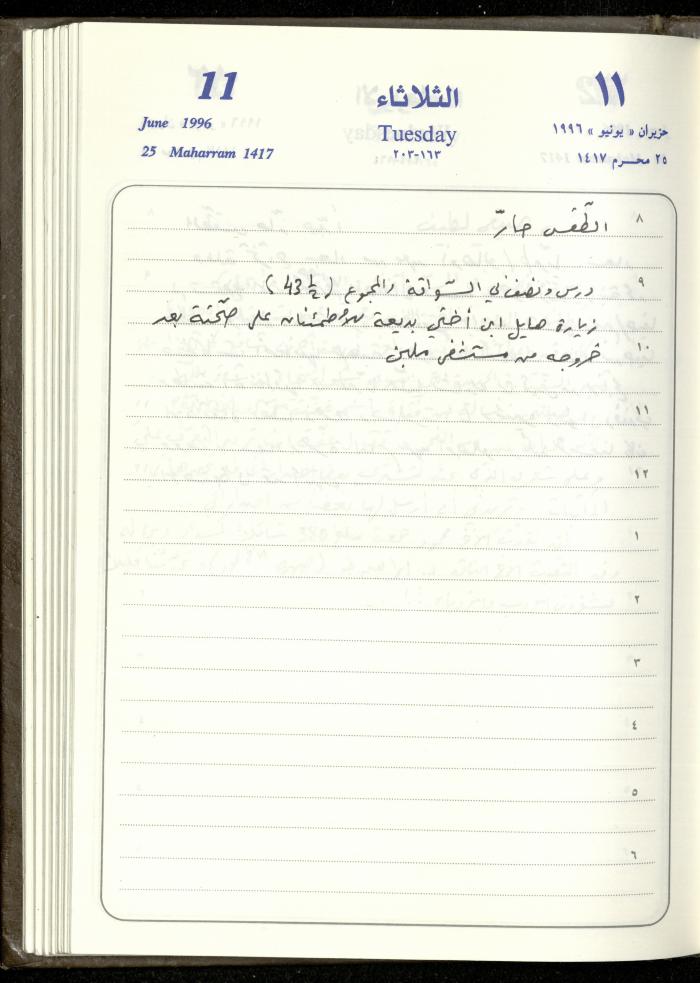 11 الثلاثاء ١١
June 1996 Tuesday حزيران « يونيو » ١٩٩٦
25 Maharram 1417 ١٦٣-٢٠٣ ٢٥ محرم ١٤١٧
٨ الطّقس حارّ
٩
درس ونصف في السّواقة والمجموع (43 ½)
زيارة هايل ابن أختي بديعة للأطمئنان على صحّته بعد
١٠ خروجه من مستشفى
١١
١٢
١
٢
٣
٤
٥
٦